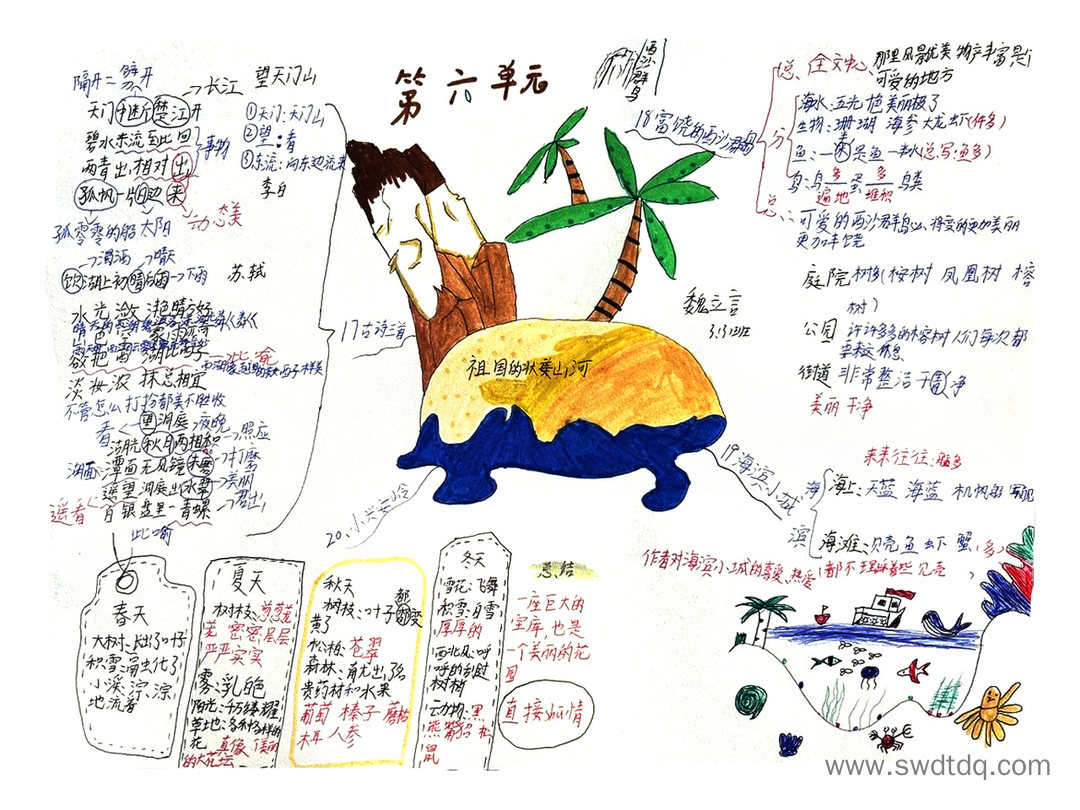 第六单元
祖国的壮美山河
魏立言
17古诗三首
望天门山
长江
隔开=劈开
天门中断楚江开
碧水东流至此回
两青出,相对出
孤帆一片日边来
事物
动态美
孤零零的船 太阳
①天门:天门山
②望:看
③东流:向东边流来
李白
饮湖上初晴后雨→下雨
苏轼
水光潋滟晴方好
欲把西湖比西子
比喻
淡妆浓抹总相宜
不管怎么打扮都美不胜收
看
望洞庭→夜晚
湖光秋月两相和→照应
湖面
潭面无风镜未磨→打磨
遥望洞庭山水翠
遥看
白银盘里一青螺
比喻
18富饶的西沙群岛
西沙群岛
总
全文中心
那里风景优美物产丰富是
可爱的地方
分
海水:五光十色 美丽极了
生物:珊瑚 海参 大龙虾(许多)
鱼:一半是鱼一半水(总写:鱼多)
鸟:鸟多 蛋多 鸟类
遍地 堆积
总:
可爱的西沙群岛必将变的更加美丽
更加丰饶
庭院 树多(桉树 凤凰树 榕
树)
公园 许许多多的榕树 人们每次都
来这休息
街道 非常整洁干净
美丽干净
19海滨小城
来来往往:船多
海滨
海上:天蓝 海蓝 机帆船 军舰
海滩:贝壳 鱼 虾 蟹(多)
作者对海滨小城的喜爱、热爱
20.小兴安岭
春天
大树、长出了叶子
积雪
融化了
小溪淙淙
地流着
夏天
树枝:葱葱茏
茏 密密层层
严严实实
雾:乳白色
阳光:千万缕 耀
草地:各种各样的
花 真像美丽
的大花坛
秋天
树枝:叶子都变
黄了
松柏:苍翠
森林:
贵药材和水果
葡萄 榛子 蘑菇
木耳 人参
冬天
雪花:飞舞
积雪:白雪
厚厚的
西北风:呼
呼的刮过
树梢
动物:黑
熊 紫貂 松
鼠
总结
一座巨大的
宝库,也是
一个美丽的花
园
直接抒情
www.swdtdq.com